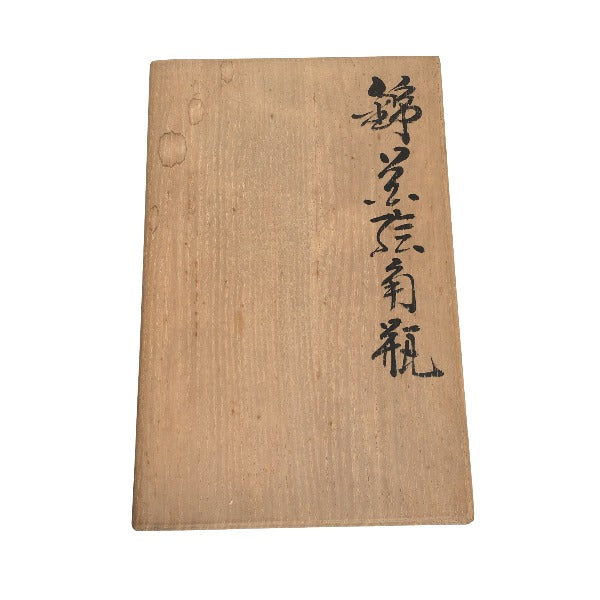 錦絵角瓶